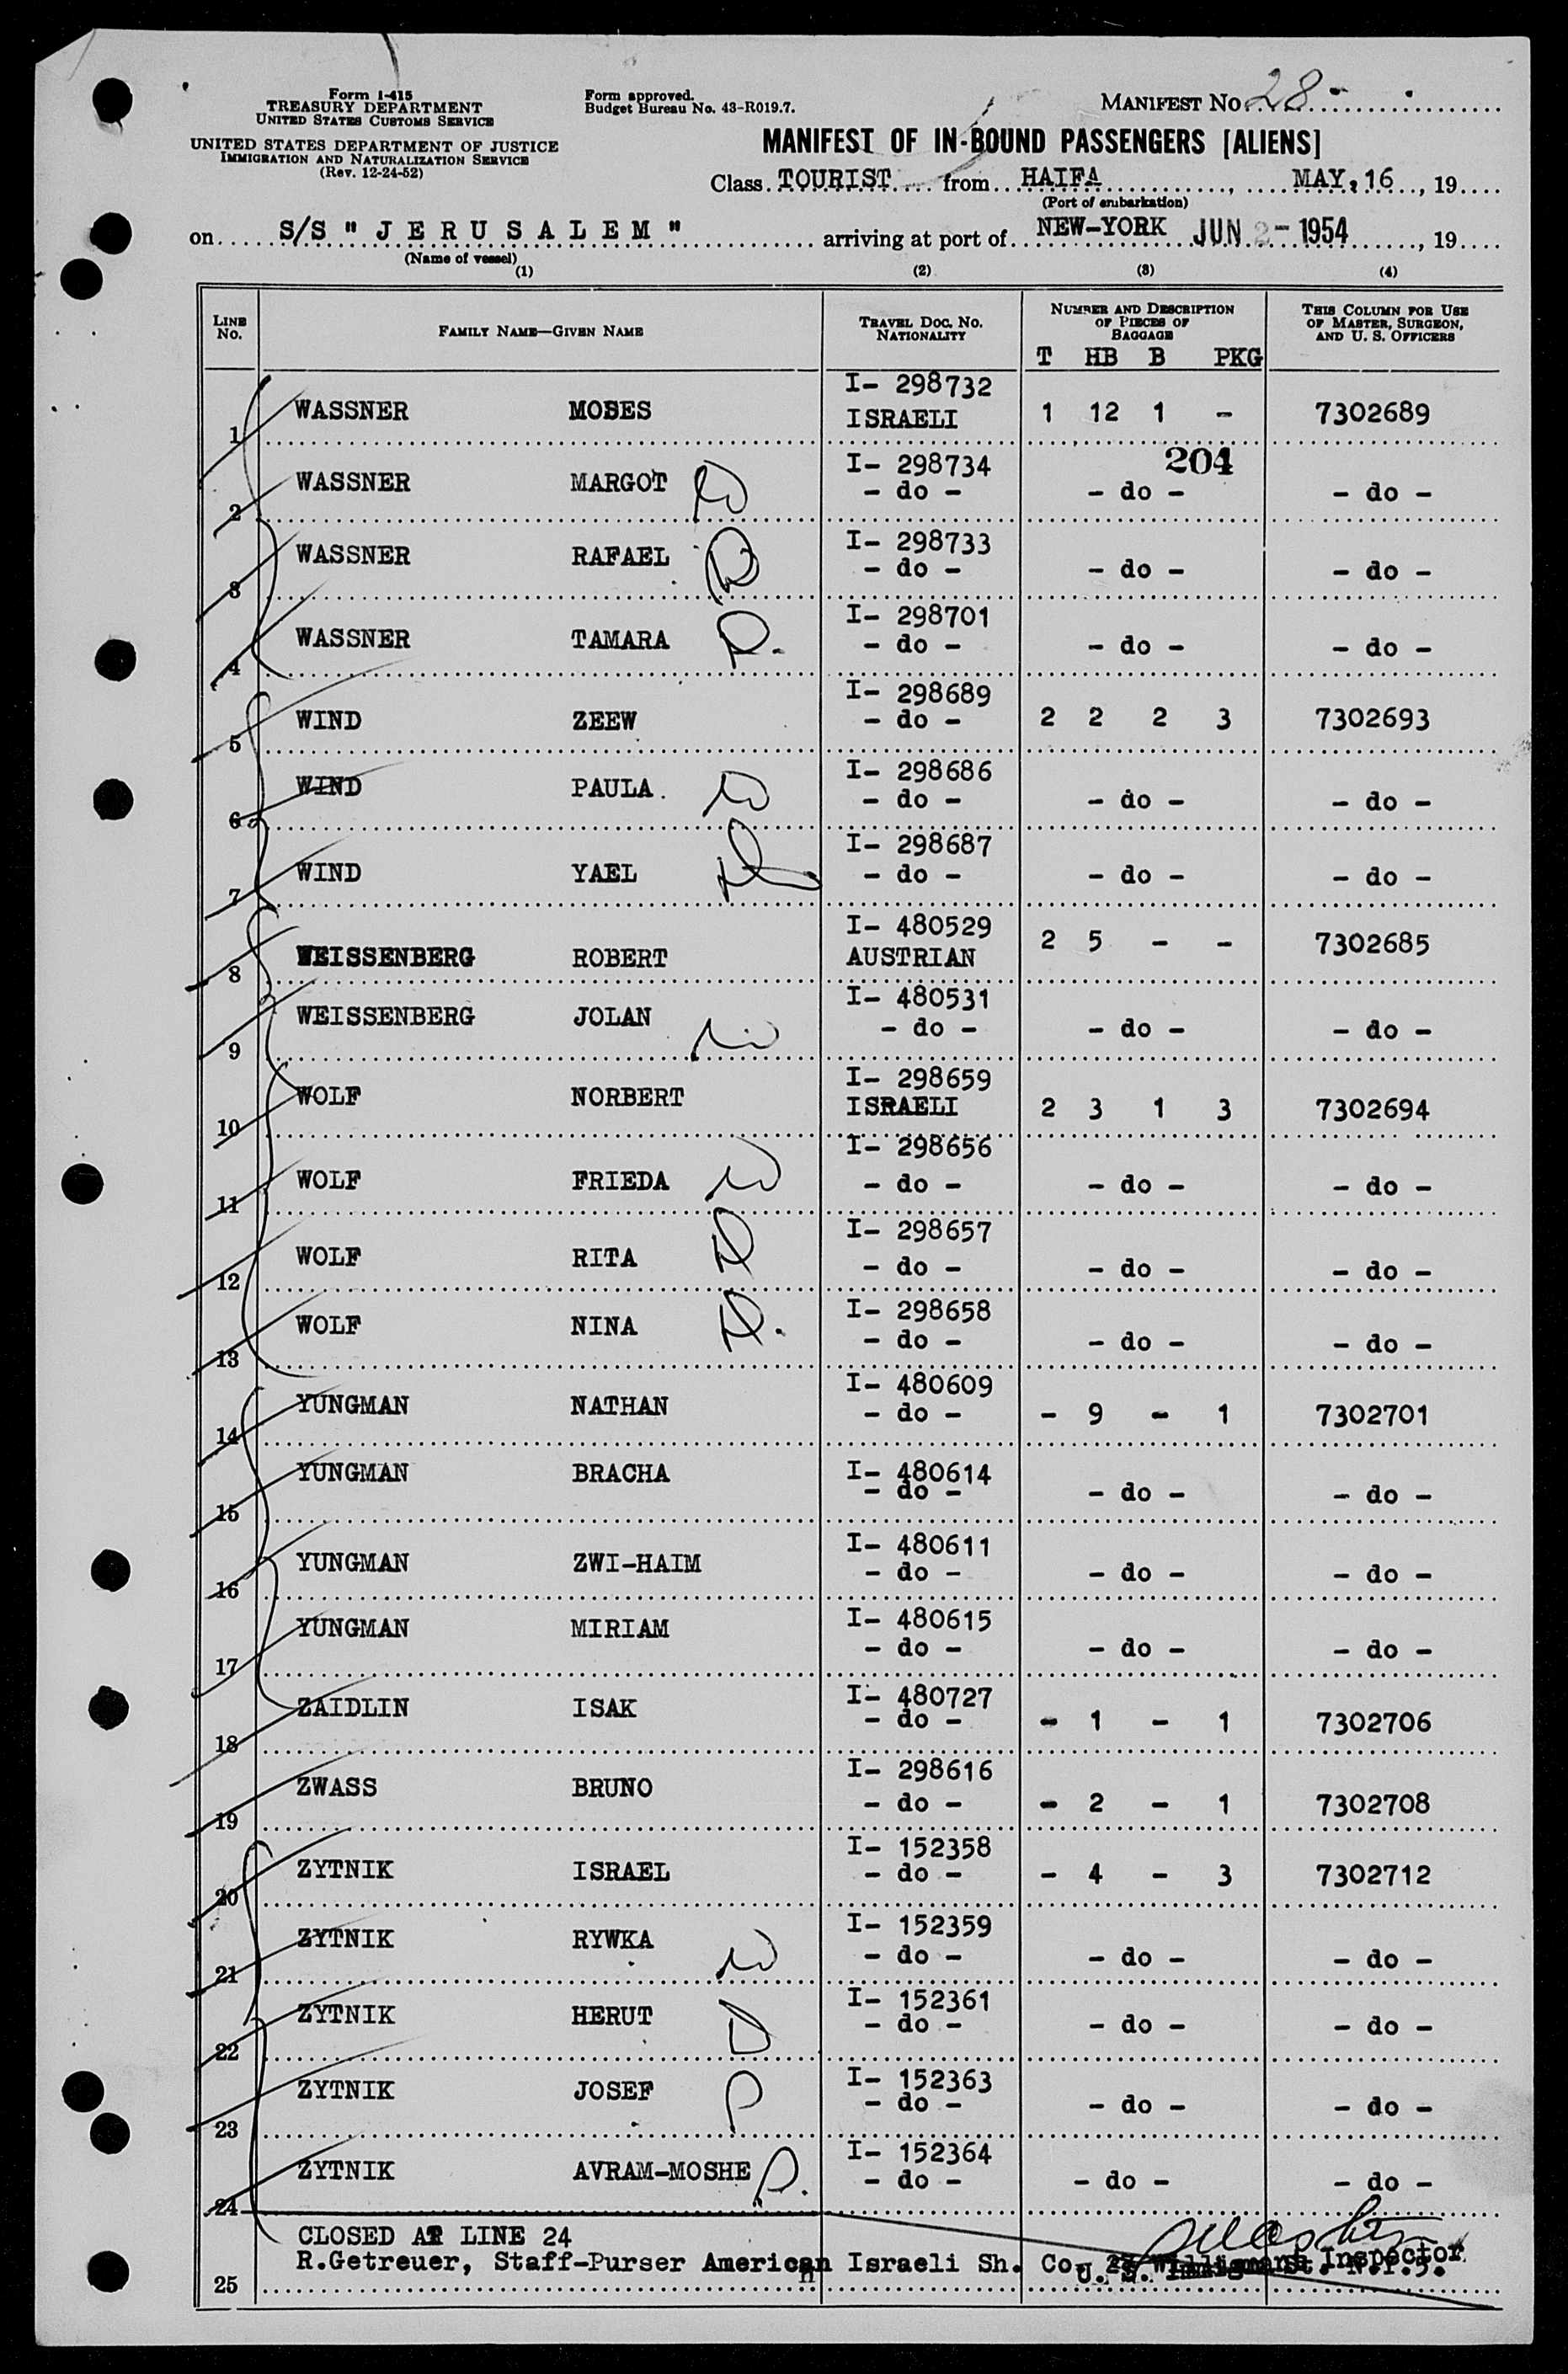 Form I-415
TREASURY DEPARTMENT
UNITED STATES CUSTOMS SERVICE
UNITED STATES DEPARTMENT OF JUSTICE
IMMIGRATION AND NATURALIZATION SERVICE
(Rev. 12-24-52)
Form approved.
Budget Bureau No. 43-R019.7.
MANIFEST No 28
MANIFEST OF IN-BOUND PASSENGERS [ALIENS]
Class TOURIST from HAIFA, MAY, 16, 19
(Port of embarkation)
on S/S " J E R U S A L E M " arriving at port of NEW-YORK JUN 2- 1954, 19
(Name of vessel)
(1) (2) (3) (4)
LINE NO. FAMILY NAME—GIVEN NAME TRAVEL DOC. NO. NATIONALITY NUMBER AND DESCRIPTION OF PIECES OF BAGGAGE THIS COLUMN FOR USE OF MASTER, SURGEON, AND U. S. OFFICERS
T HB B PKG
1 WASSNER MOSES I- 298732 ISRAELI 1 12 1 - 7302689
204
2 WASSNER MARGOT I- 298734 - do - - do - - do -
3 WASSNER RAFAEL I- 298733 - do - - do - - do -
4 WASSNER TAMARA I- 298701 - do - - do - - do -
5 WIND ZEEW I- 298689 - do - 2 2 2 3 7302693
6 WIND PAULA. I- 298686 - do - - do - - do -
7 WIND YAEL I- 298687 - do - - do - - do -
8 WEISSENBERG ROBERT I- 480529 AUSTRIAN 2 5 - - 7302685
9 WEISSENBERG JOLAN I- 480531 - do - - do - - do -
10 WOLF NORBERT I- 298659 ISRAELI 2 3 1 3 7302694
11 WOLF FRIEDA I- 298656 - do - - do - - do -
12 WOLF RITA I- 298657 - do - - do - - do -
13 WOLF NINA I- 298658 - do - - do - - do -
14 YUNGMAN NATHAN I- 480609 - do - - 9 - 1 7302701
15 YUNGMAN BRACHA I- 480614 - do - - do - - do -
16 YUNGMAN ZWI-HAIM I- 480611 - do - - do - - do -
17 YUNGMAN MIRIAM I- 480615 - do - - do - - do -
18 ZAIDLIN ISAK I- 480727 - do - - 1 - 1 7302706
19 ZWASS BRUNO I- 298616 - do - - 2 - 1 7302708
20 ZYTNIK ISRAEL I- 152358 - do - - 4 - 3 7302712
21 ZYTNIK RYWKA I- 152359 - do - - do - - do -
22 ZYTNIK HERUT I- 152361 - do - - do - - do -
23 ZYTNIK JOSEF I- 152363 - do - - do - - do -
24 ZYTNIK AVRAM-MOSHE I- 152364 - do - - do - - do -
CLOSED AT LINE 24
R.Getreuer, Staff-Purser American Israeli Sh. Co. Inspector
25 U. S. St. N.Y.5.